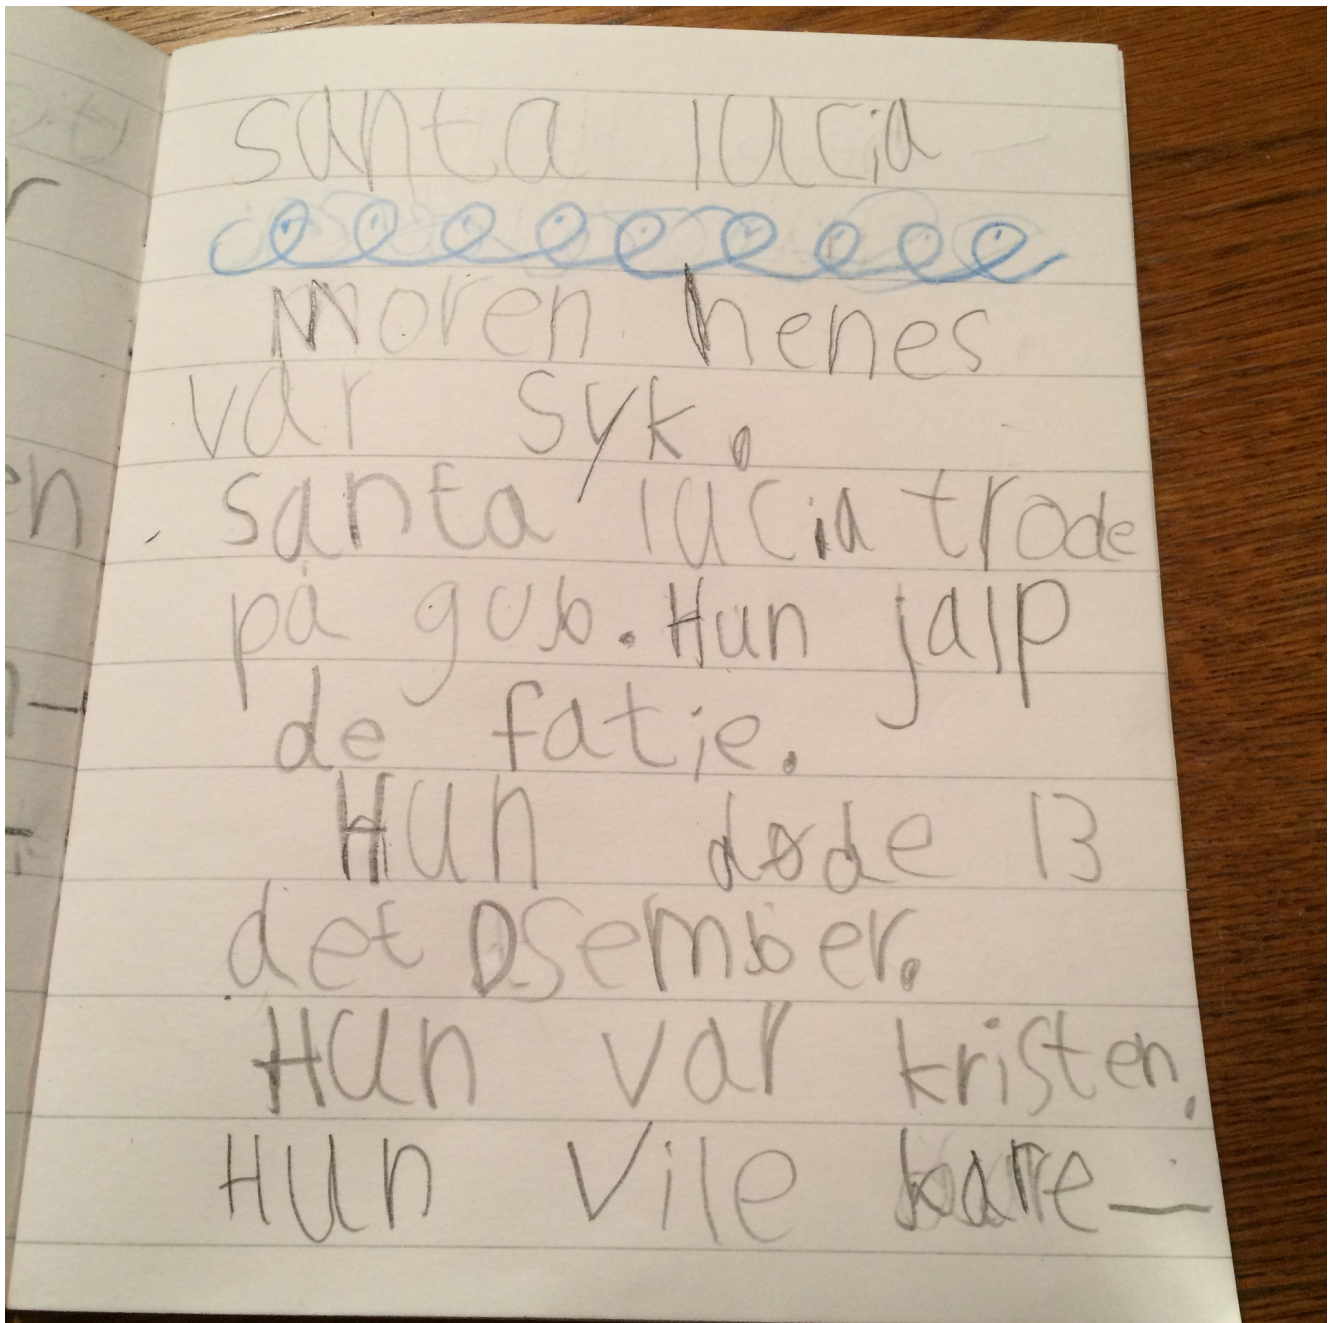 santa lucia
moren henes
var syk.
santa lucia trode
på gub. Hun jalp
de fatie.
Hun døde 13
det Dsember.
Hun var kristen.
Hun vile bare—